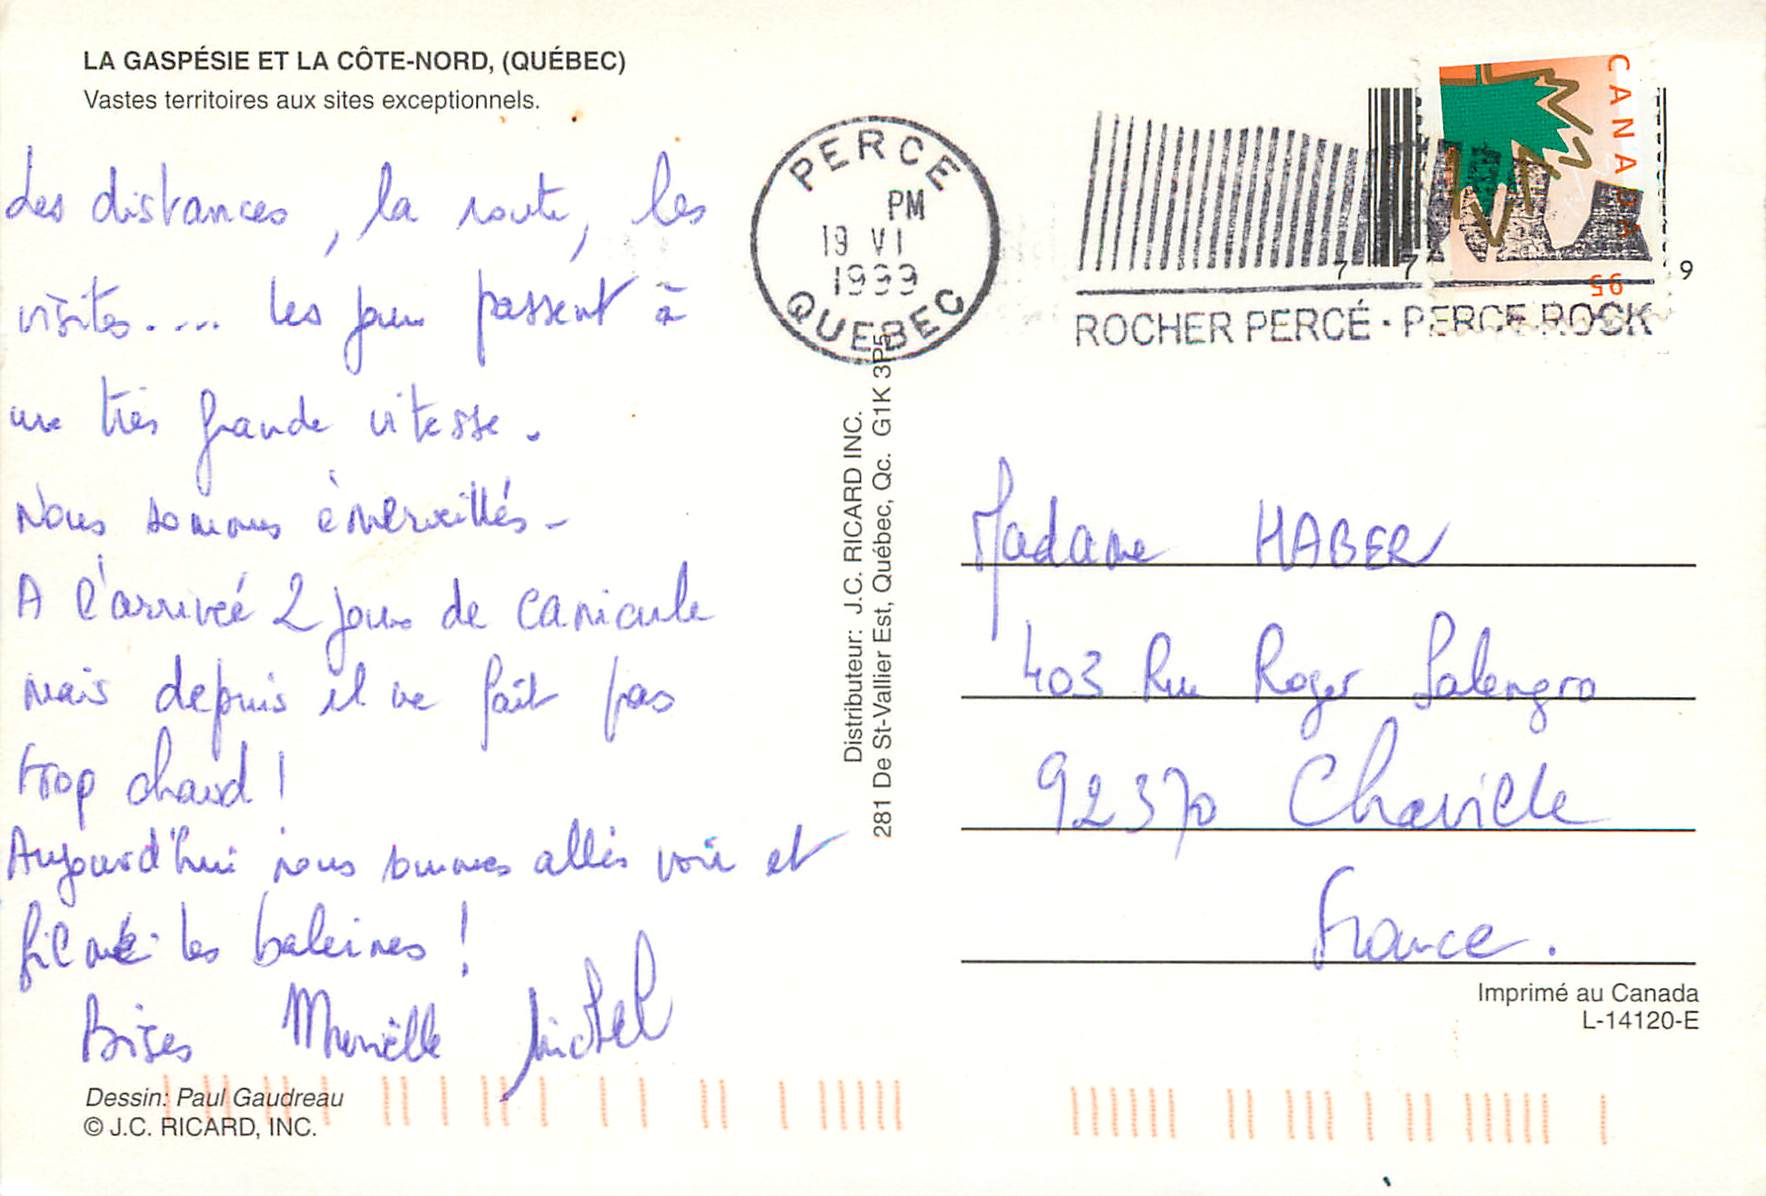 LA GASPÉSIE ET LA CÔTE-NORD, (QUÉBEC)
Vastes territoires aux sites exceptionnels.
Les distances, la route, les
visites.... les jours passent à
une très grande vitesse.
Nous sommes émerveillés -
A l'arrivée 2 jours de canicule
mais depuis il ne fait pas
trop chaud !
Aujourd'hui nous sommes allés voir et
filmer les baleines !
Bises Murielle Michel
Dessin: Paul Gaudreau
© J.C. RICARD, INC.
PERCE
PM
19 VI
1999
QUEBEC
ROCHER PERCÉ · PERCE ROCK
CANADA
95
7 7 9
Distributeur: J.C. RICARD INC.
281 De St-Vallier Est, Québec, Qc. G1K 3P5
Madame HABER
403 Rue Roger Salengro
92370 Chaville
France.
Imprimé au Canada
L-14120-E